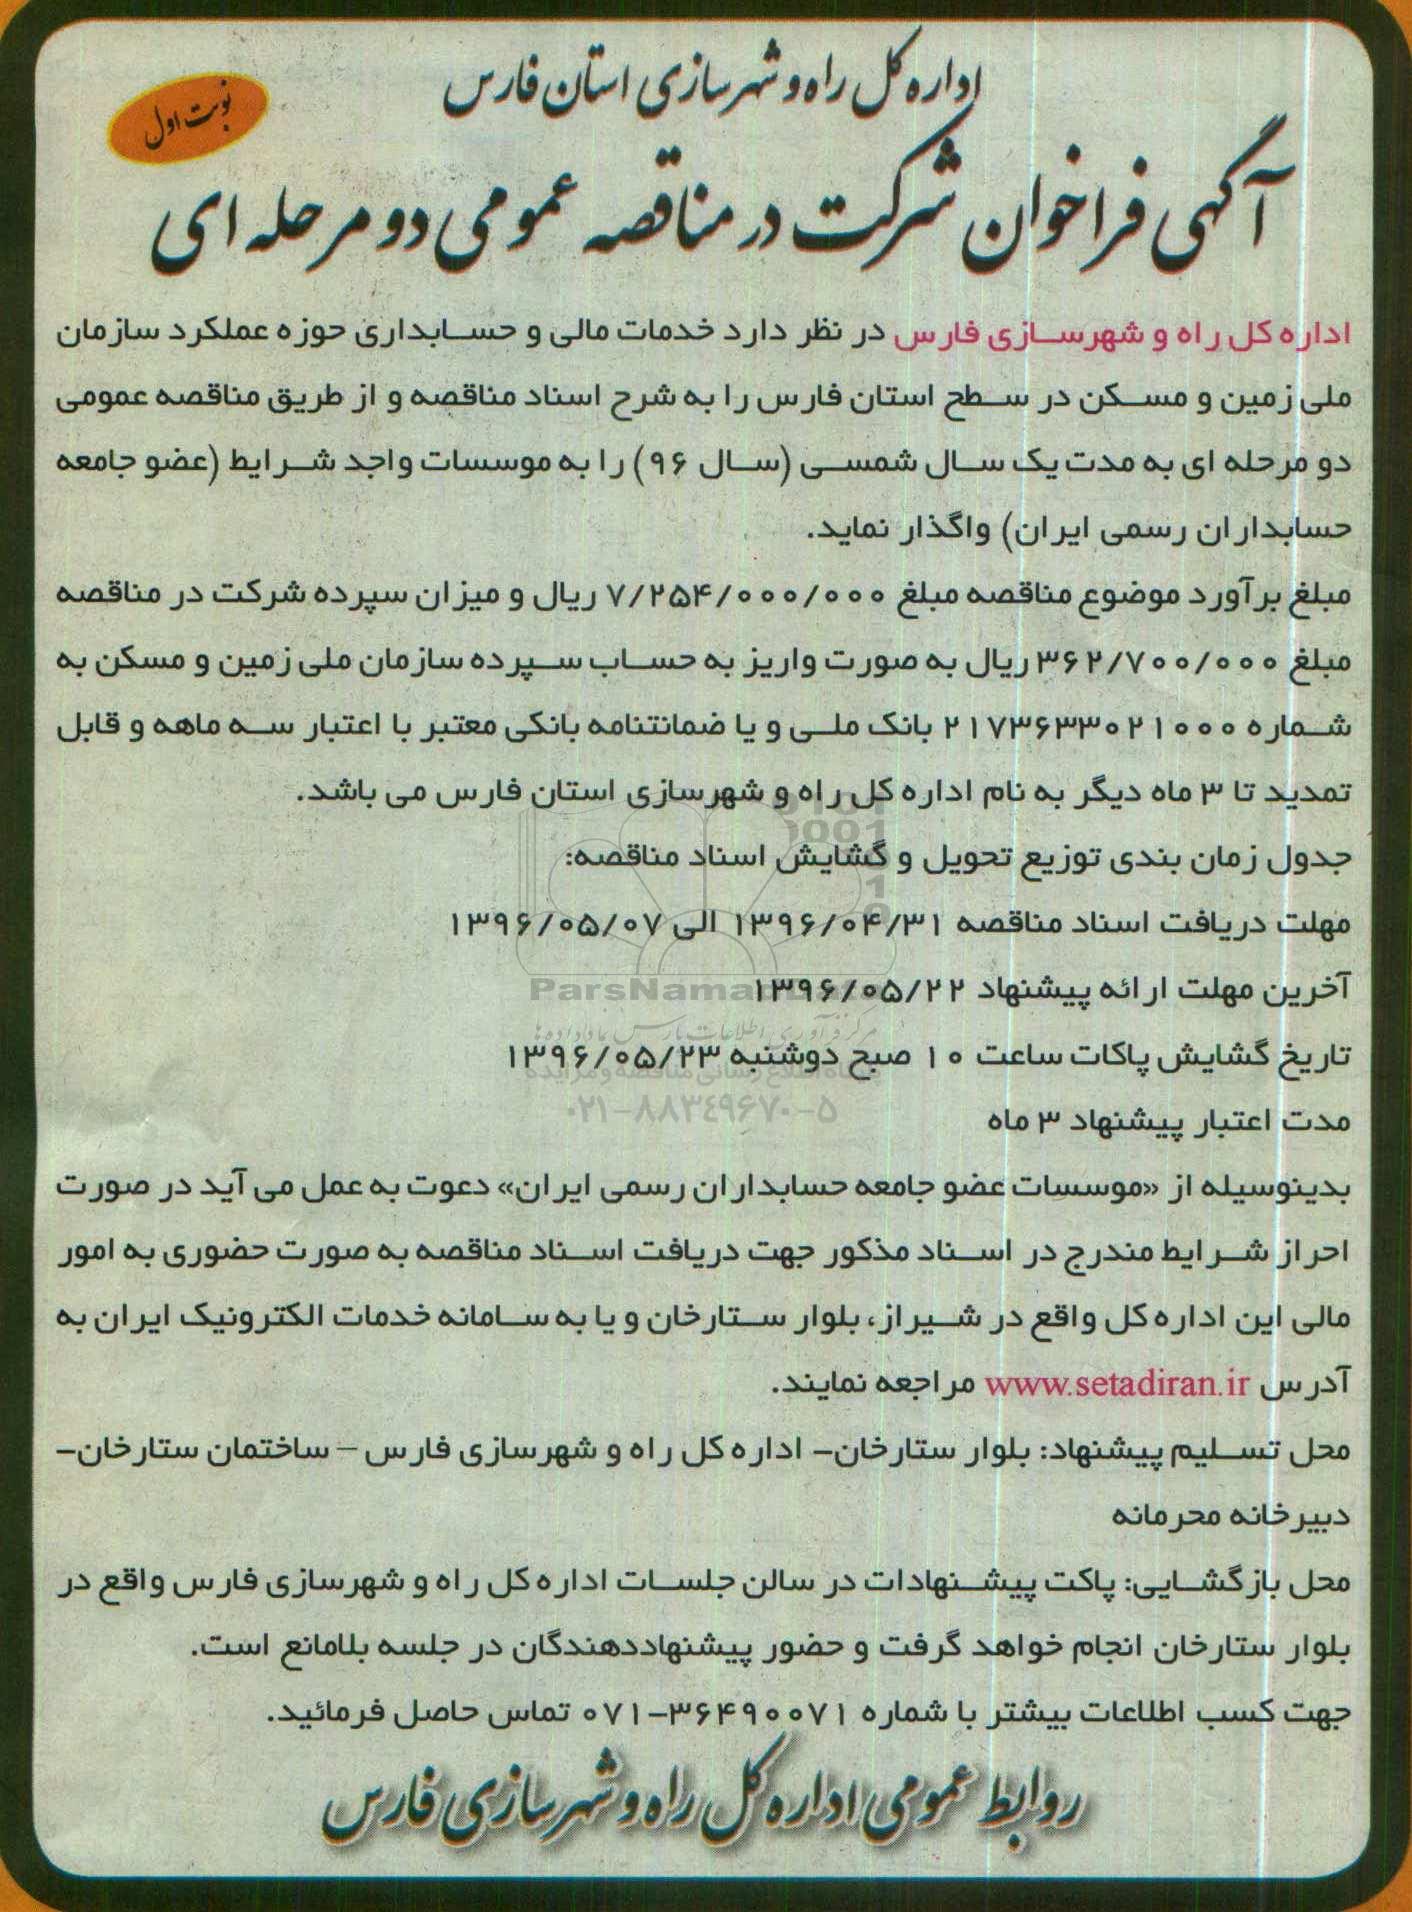 اداره کل راه و شهرسازی استان فارس
نوبت اول
آگهی فراخوان شرکت در مناقصه عمومی دو مرحله ای
اداره کل راه و شهرسازی فارس در نظر دارد خدمات مالی و حسابداری حوزه عملکرد سازمان
ملی زمین و مسکن در سطح استان فارس را به شرح اسناد مناقصه و از طریق مناقصه عمومی
دو مرحله ای به مدت یک سال شمسی (سال ۹۶) را به موسسات واجد شرایط (عضو جامعه
حسابداران رسمی ایران) واگذار نماید.
مبلغ برآورد موضوع مناقصه مبلغ ۷/۲۵۴/۰۰۰/۰۰۰ ریال و میزان سپرده شرکت در مناقصه
مبلغ ۳۶۲/۷۰۰/۰۰۰ ریال به صورت واریز به حساب سپرده سازمان ملی زمین و مسکن به
شماره ۲۱۷۳۶۳۳۰۲۱۰۰۰ بانک ملی و یا ضمانتنامه بانکی معتبر با اعتبار سه ماهه و قابل
تمدید تا ۳ ماه دیگر به نام اداره کل راه و شهرسازی استان فارس می باشد.
جدول زمان بندی توزیع تحویل و گشایش اسناد مناقصه:
مهلت دریافت اسناد مناقصه ۱۳۹۶/۰۴/۳۱ الی ۱۳۹۶/۰۵/۰۷
آخرین مهلت ارائه پیشنهاد ۱۳۹۶/۰۵/۲۲
ParsNamad
تاریخ گشایش پاکات ساعت ۱۰ صبح دوشنبه ۱۳۹۶/۰۵/۲۳
۰۲۱-۸۸۳۴۹۶۷۰-۵
مدت اعتبار پیشنهاد ۳ ماه
بدینوسیله از «موسسات عضو جامعه حسابداران رسمی ایران» دعوت به عمل می آید در صورت
احراز شرایط مندرج در اسناد مذکور جهت دریافت اسناد مناقصه به صورت حضوری به امور
مالی این اداره کل واقع در شیراز، بلوار ستارخان و یا به سامانه خدمات الکترونیک ایران به
آدرس www.setadiran.ir مراجعه نمایند.
محل تسلیم پیشنهاد: بلوار ستارخان- اداره کل راه و شهرسازی فارس – ساختمان ستارخان-
دبیرخانه محرمانه
محل بازگشایی: پاکت پیشنهادات در سالن جلسات اداره کل راه و شهرسازی فارس واقع در
بلوار ستارخان انجام خواهد گرفت و حضور پیشنهاددهندگان در جلسه بلامانع است.
جهت کسب اطلاعات بیشتر با شماره ۳۶۴۹۰۰۷۱-۰۷۱ تماس حاصل فرمائید.
روابط عمومی اداره کل راه و شهرسازی فارس